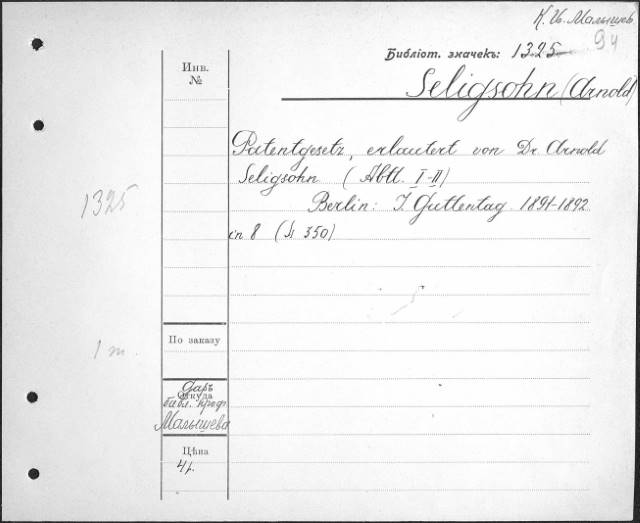 К. И. Малышев
94
Библіот. значекъ: 1325
Инв.
№
Seligsohn (Arnold)
Patentgesetz, erläutert von Dr. Arnold
Seligsohn (Abtl. I-II)
1325
Berlin: J. Guttentag. 1891-1892
in 8 (350)
По заказу
1 т.
Откуда
Даръ
библ. проф.
Малышева
Цѣна
4 р.